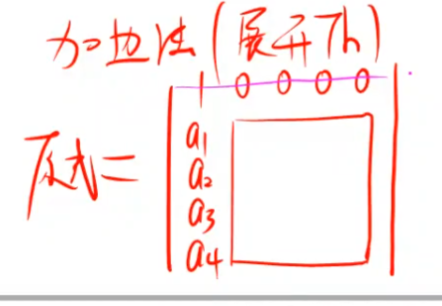 加边法(展开Th)
1 0 0 0 0
a1
原式= a2
a3
a4